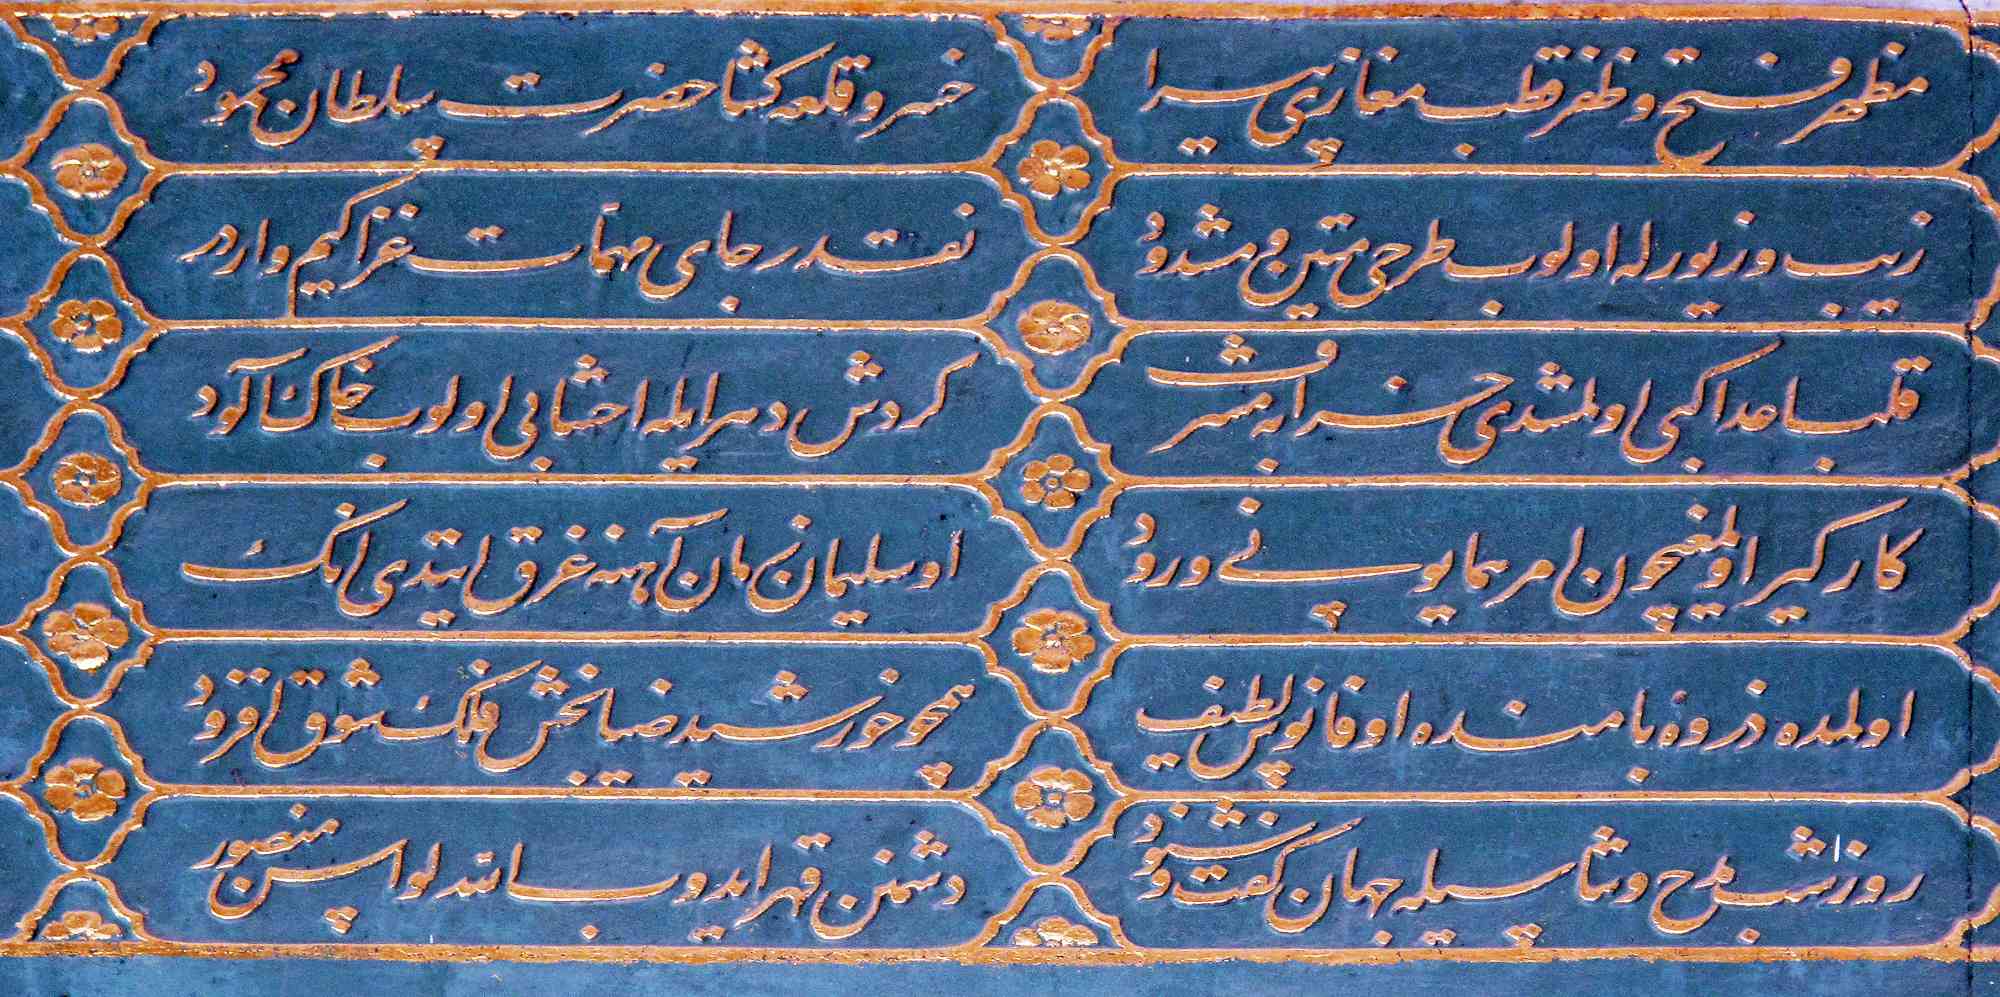 مظهر فتح و ظفر قطب مغازی پیرا
خسرو قلعه کشا حضرت سلطان محمود
زیب و زیور له اولوب طرحی متین و مشدود
نقدر جای مهمات غزا کیم واردر
قلب اعدا کبی اولمشدی خرابه مشرف
کردش دهر ایله اخشابی اولوب خاک آلود
کارکیر اولمغیچون امر همایونی ورود
او سلیمان زمان آهنه غرق ایتدی انک
اولمده ذروۀ بامنده او فانوس لطیف
همچو خورشید ضیابخش فلک شوق افزود
روز شب مدح و ثناسیله جهان کفت و شنود
دشمنن قهر ایدوب لواسن منصور